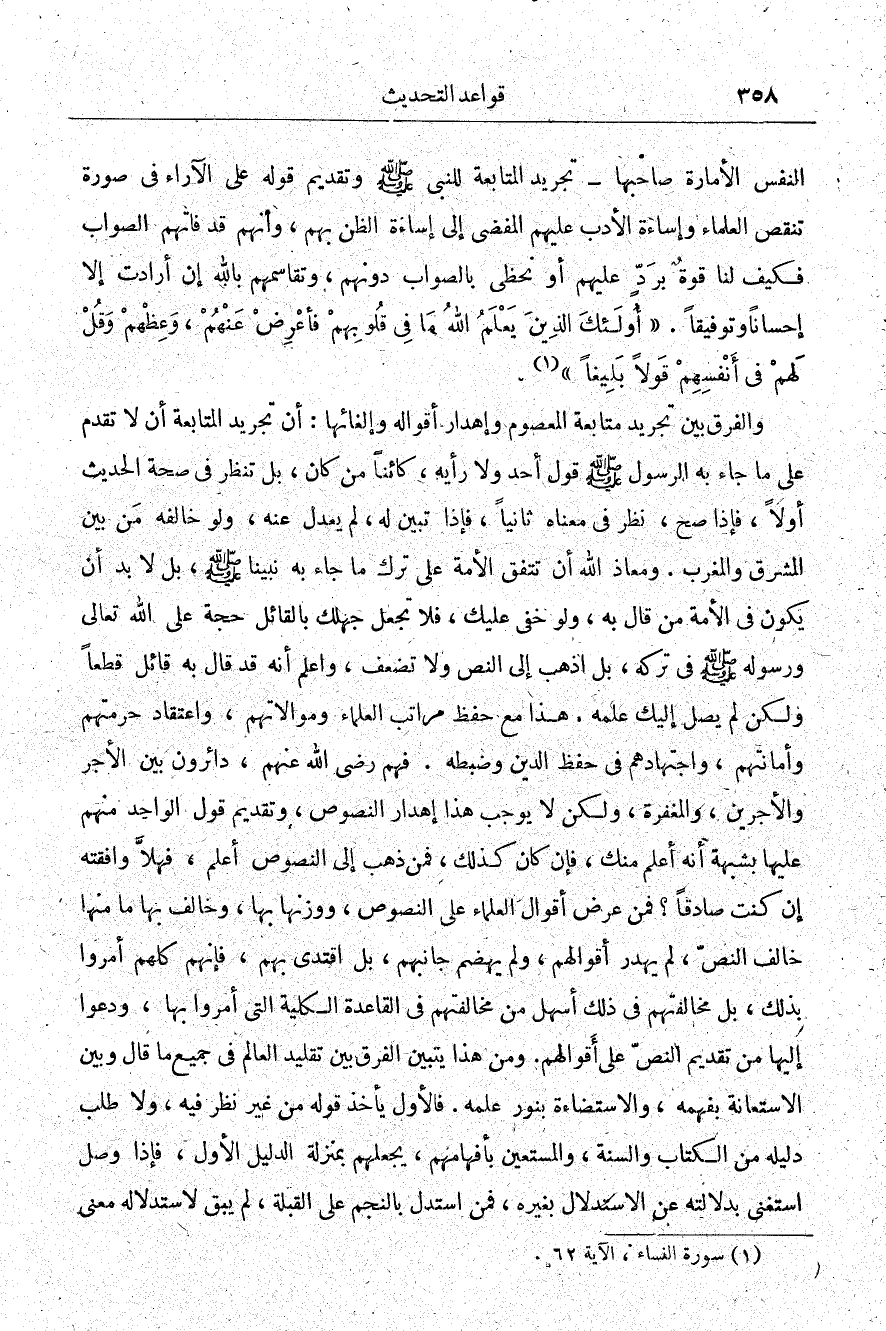 ٣٥٨
قواعد التحديث
النفس الأمارة صاحبها – تجريد المتابعة للنبى ﷺ وتقديم قوله على الآراء فى صورة
تنقص العلماء وإساءة الأدب عليهم المفضى إلى إساءة الظن بهم ، وأنهم قد فاتهم الصواب
فكيف لنا قوةٌ برَدّ عليهم أو نحظى بالصواب دونهم ، وتقاسمهم بالله إن أرادت إلا
إحساناً وتوفيقاً . « أُولَـئكَ الذِينَ يَعْلَمُ اللهُ مَا فِى قُلُوبِهِمْ فأعْرِضْ عَنْهُمْ ، وَعِظْهمْ وَقُلْ
لَهمْ فى أَنْفُسِهِمْ قَولاً بَلِيغاً »(١) .
والفرق بين تجريد متابعة المعصوم وإهدار أقواله وإلغائها : أن تجريد المتابعة أن لا تقدم
على ما جاء به الرسول ﷺ قول أحد ولا رأيه ، كائناً من كان ، بل تنظر فى صحة الحديث
أولاً ، فإذا صح ، نظر فى معناه ثانياً ، فإذا تبين له ، لم يعدل عنه ، ولو خالفه مَن بين
المشرق والمغرب . ومعاذ الله أن تتفق الأمة على ترك ما جاء به نبينا ﷺ ، بل لا بد أن
يكون فى الأمة من قال به ، ولو خفى عليك ، فلا تجعل جهلك بالقائل حجة على الله تعالى
ورسوله ﷺ فى تركه ، بل اذهب إلى النص ولا تضعف ، واعلم أنه قد قال به قائل قطعاً
ولكن لم يصل إليك علمه . هذا مع حفظ مراتب العلماء وموالاتهم ، واعتقاد حرمتهم
وأمانتهم ، واجتهادهم فى حفظ الدين وضبطه . فهم رضى الله عنهم ، دائرون بين الأجر
والأجرين ، والمغفرة ، ولكن لا يوجب هذا إهدار النصوص ، وتقديم قول الواحد منهم
عليها بشبهة أنه أعلم منك ، فإن كان كذلك ، فمن ذهب إلى النصوص أعلم ، فهلاَّ وافقته
إن كنت صادقاً ؟ فمن عرض أقوال العلماء على النصوص ، ووزنها بها ، وخالف بها ما منها
خالف النصّ ، لم يهدر أقوالهم ، ولم يهضم جانبهم ، بل اقتدى بهم ، فإنهم كلهم أمروا
بذلك ، بل مخالفتهم فى ذلك أسهل من مخالفتهم فى القاعدة الكلية التى أمروا بها ، ودعوا
إليها من تقديم النصّ على أقوالهم. ومن هذا يتبين الفرق بين تقليد العالم فى جميع ما قال وبين
الاستعانة بفهمه ، والاستضاءة بنور علمه . فالأول يأخذ قوله من غير نظر فيه ، ولا طلب
دليله من الكتاب والسنة ، والمستعين بأفهامهم ، يجعلهم بمنزلة الدليل الأول ، فإذا وصل
استغنى بدلالته عن الاستدلال بغيره ، فمن استدل بالنجم على القبلة ، لم يبق لاستدلاله معنى
(١) سورة النساء ، الآية ٦٢ .